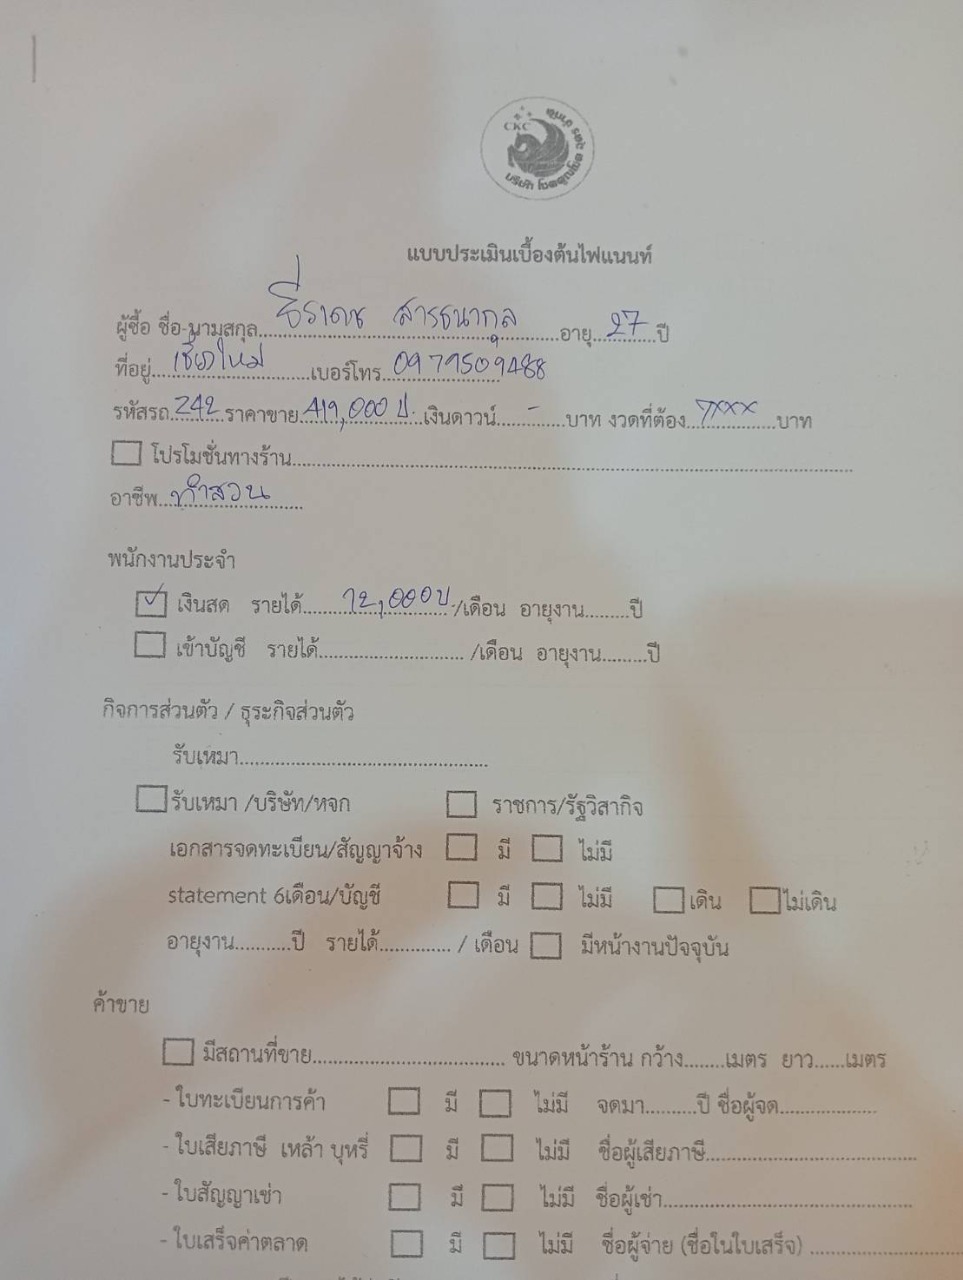 CKC
บริษัท โชคคูณโชค
แบบประเมินเบื้องต้นไฟแนนท์
ผู้ซื้อ ชื่อ-นามสกุล ธีราเดช สารธนากุล อายุ 27 ปี
ที่อยู่ เชียงใหม่ เบอร์โทร 0979509488
รหัสรถ 242 ราคาขาย 419,000 บ. เงินดาวน์ - บาท งวดที่ต้อง 7xxx บาท
โปรโมชั่นทางร้าน
อาชีพ ทำสวน
พนักงานประจำ
เงินสด รายได้ 12,000 บ. /เดือน อายุงาน ปี
เข้าบัญชี รายได้ /เดือน อายุงาน ปี
กิจการส่วนตัว / ธุระกิจส่วนตัว
รับเหมา
รับเหมา /บริษัท/หจก ราชการ/รัฐวิสากิจ
เอกสารจดทะเบียน/สัญญาจ้าง มี ไม่มี
statement 6เดือน/บัญชี มี ไม่มี เดิน ไม่เดิน
อายุงาน ปี รายได้ / เดือน มีหน้างานปัจจุบัน
ค้าขาย
มีสถานที่ขาย ขนาดหน้าร้าน กว้าง เมตร ยาว เมตร
- ใบทะเบียนการค้า มี ไม่มี จดมา ปี ชื่อผู้จด
- ใบเสียภาษี เหล้า บุหรี่ มี ไม่มี ชื่อผู้เสียภาษี
- ใบสัญญาเช่า มี ไม่มี ชื่อผู้เช่า
- ใบเสร็จค่าตลาด มี ไม่มี ชื่อผู้จ่าย (ชื่อในใบเสร็จ)